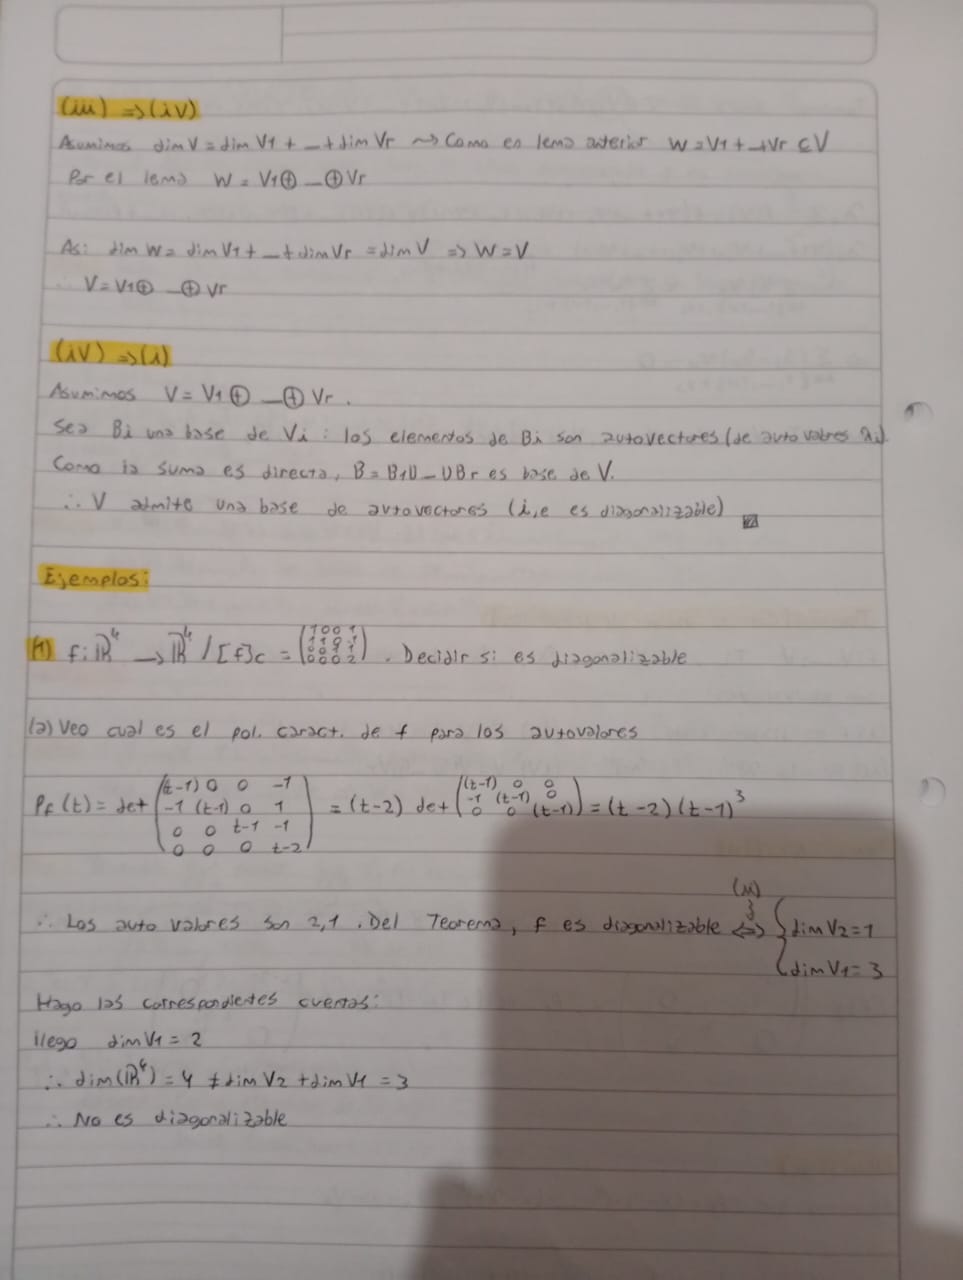 (iii) => (iv)
Asumimos dim V = dim V1 + _ + dim Vr ~> Como en lema anterior W = V1 + _ + Vr ⊂ V
Por el lema W = V1 ⊕ _ ⊕ Vr
Asi dim W = dim V1 + _ + dim Vr = dim V => W = V
∴ V = V1 ⊕ _ ⊕ Vr
(iv) => (i)
Asumimos V = V1 ⊕ _ ⊕ Vr.
Sea Bi una base de Vi : los elementos de Bi son autovectores (de autovalores λi).
Como la suma es directa, B = B1 U _ U Br es base de V.
∴ V admite una base de autovectores (i,e es diagonalizable)
Ejemplos:
(1) f: ℝ⁴ → ℝ⁴ / [f]c = (1 0 0 1
1 1 0 -1
0 0 1 1
0 0 0 2) . Decidir si es diagonalizable
(a) Veo cual es el pol. caract. de f para los autovalores
Pf (t) = det ((t-1) 0 0 -1
-1 (t-1) 0 1
0 0 t-1 -1
0 0 0 t-2) = (t-2) det ((t-1) 0 0
-1 (t-1) 0
0 0 (t-1)) = (t-2) (t-1)³
(ii)
∴ Los auto valores son 2,1 . Del Teorema, f es diagonalizable <=> { dim V2 = 1
dim V1 = 3
Hago las correspondientes cuentas:
llego dim V1 = 2
∴ dim(ℝ⁴) = 4 ≠ dim V2 + dim V1 = 3
∴ No es diagonalizable